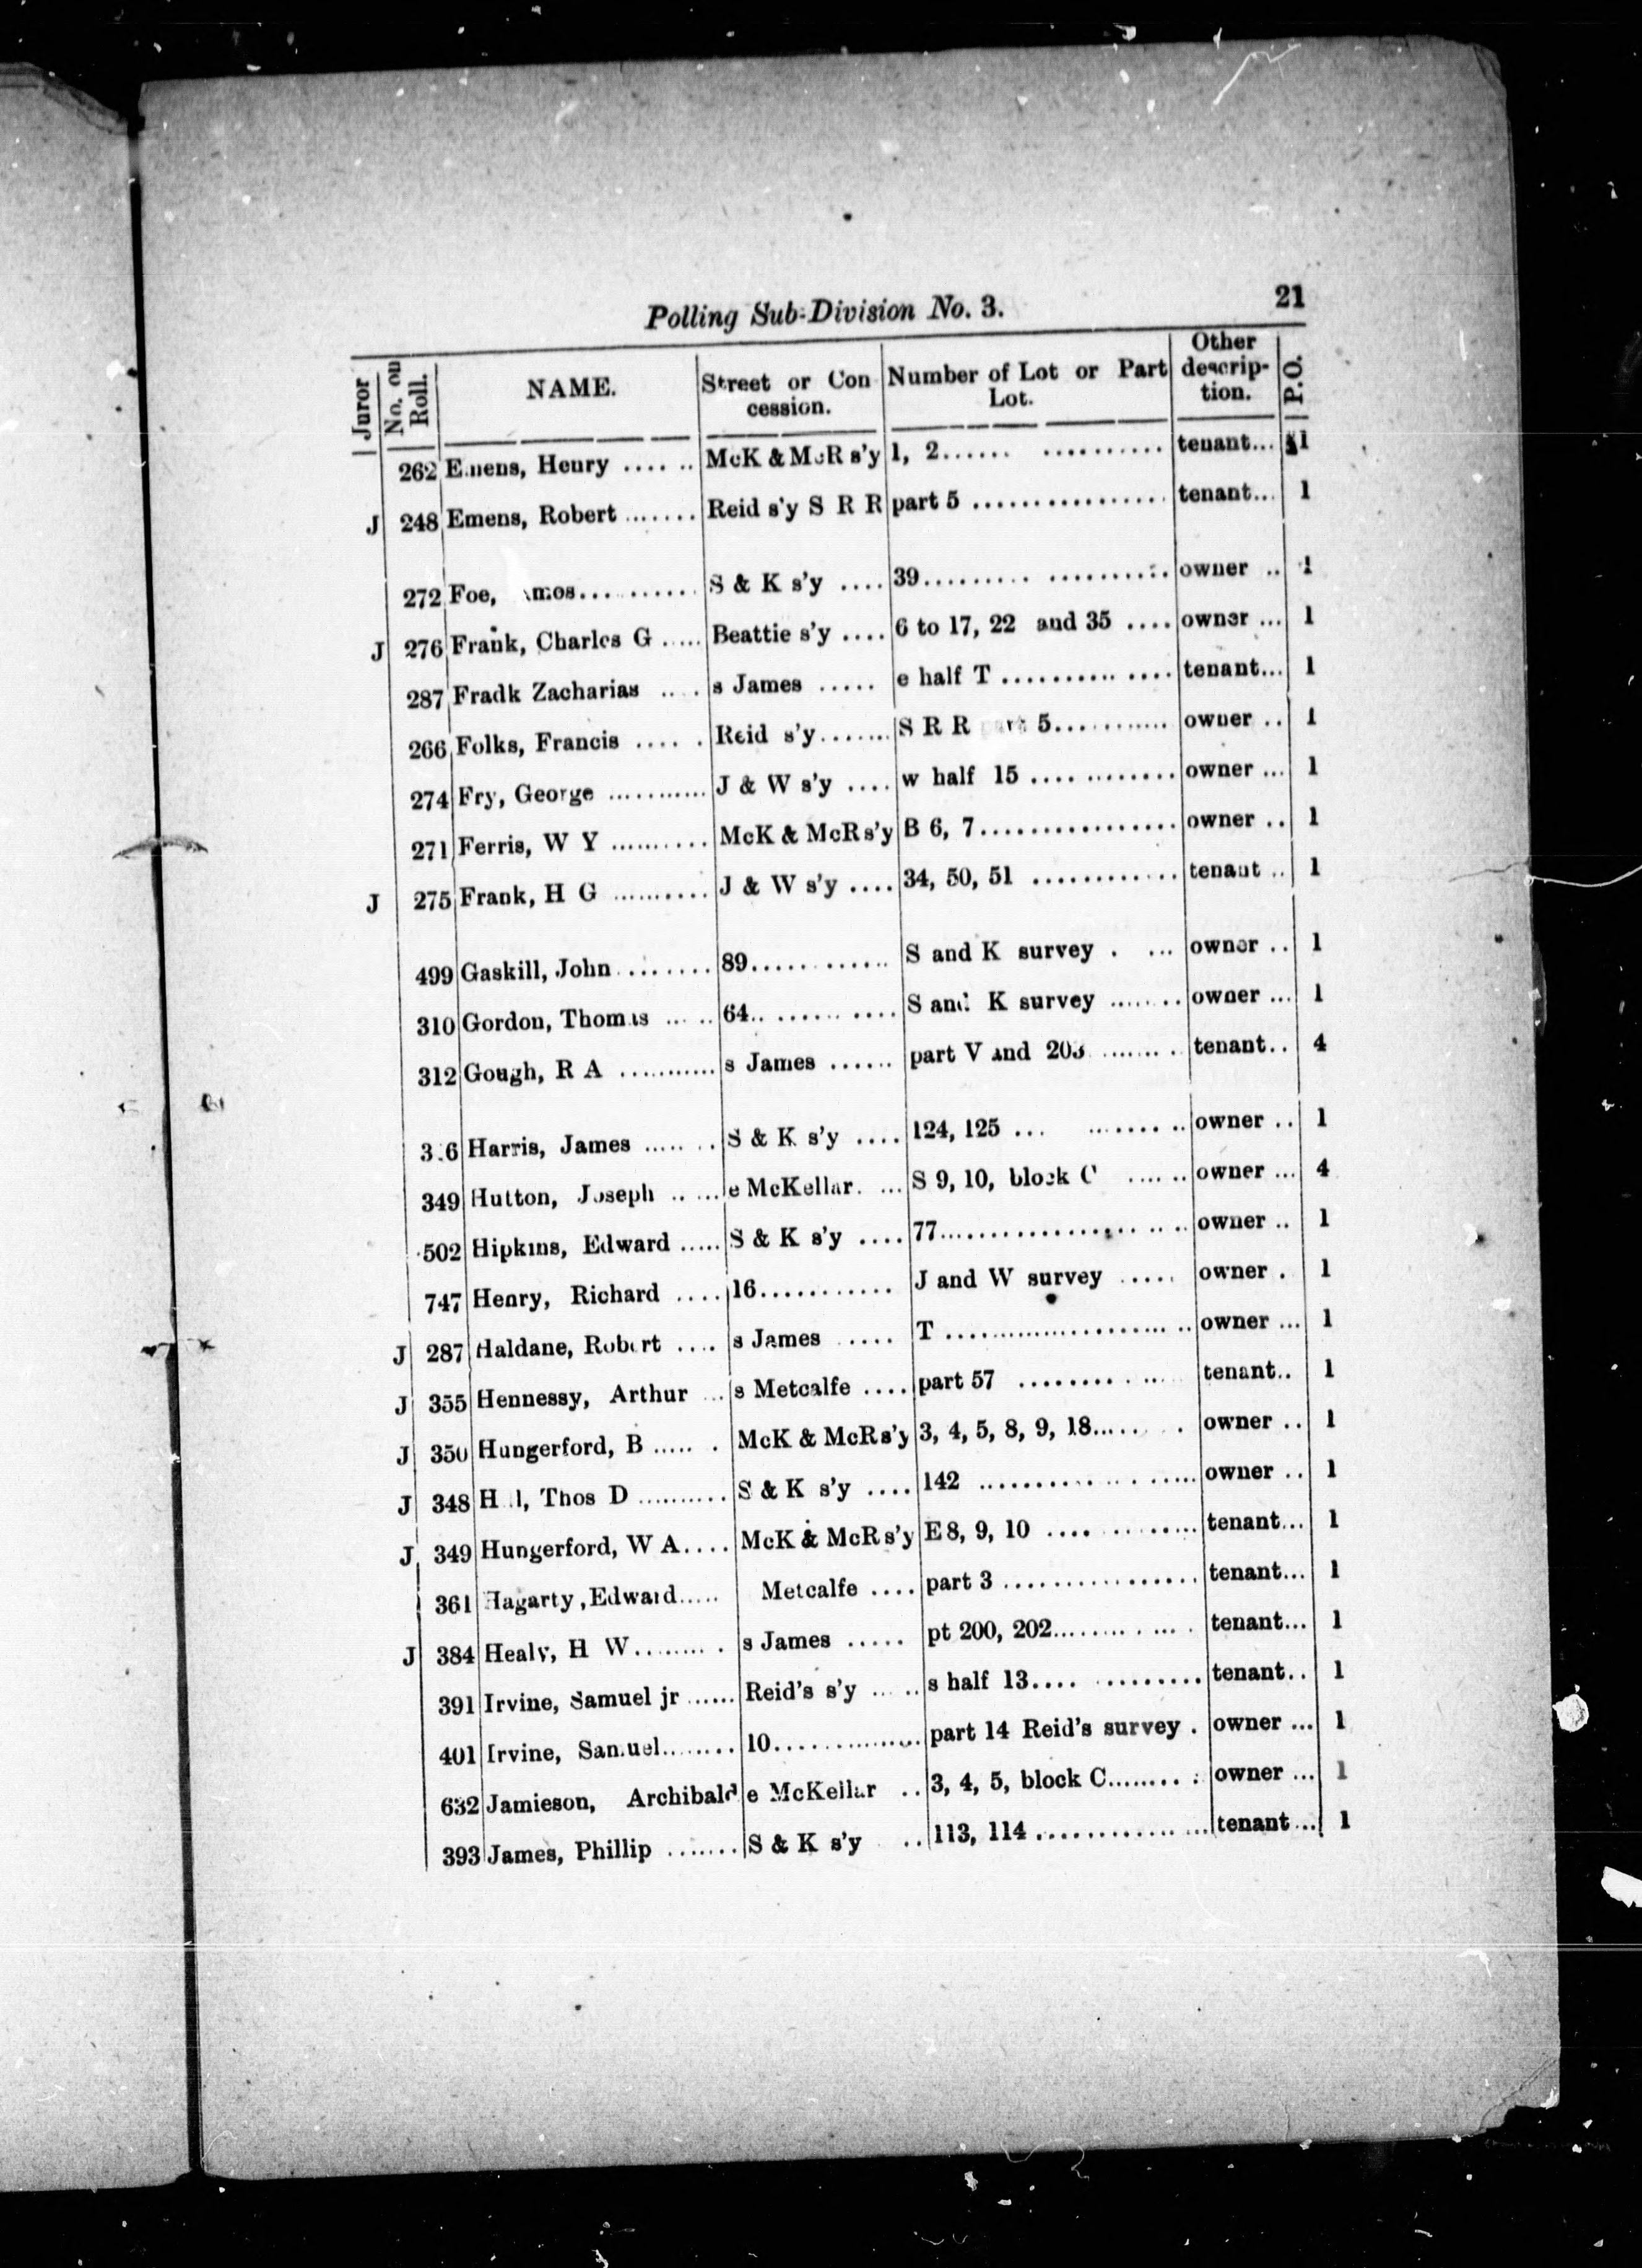 Polling Sub-Division No. 3. 21
Juror No. on Roll. NAME. Street or Con cession. Number of Lot or Part Lot. Other descrip- tion. P.O.
262 Emens, Henry ...... McK & McR s'y 1, 2...... .......... tenant... 1
J 248 Emens, Robert ....... Reid s'y S R R part 5 ................ tenant... 1
272 Foe, Amos.......... S & K s'y .... 39......... .......... owner .. 1
J 276 Frank, Charles G ..... Beattie s'y .... 6 to 17, 22 and 35 .... owner ... 1
287 Fradk Zacharias .... s James ..... e half T .......... .... tenant... 1
266 Folks, Francis ..... Reid s'y....... S R R part 5........... owner .. 1
274 Fry, George ........... J & W s'y .... w half 15 .... ......... owner ... 1
271 Ferris, W Y .......... McK & McR s'y B 6, 7................ owner .. 1
J 275 Frank, H G .......... J & W s'y .... 34, 50, 51 ............ tenant .. 1
499 Gaskill, John ........ 89............ S and K survey . ... owner .. 1
310 Gordon, Thomas ..... 64.. ...... .... S and K survey ....... owner ... 1
312 Gough, R A ........... s James ...... part V and 203 ....... . tenant.. 4
Harris, James ...... . S & K s'y .... 124, 125 ... ......... owner .. 1
349 Hutton, Joseph .. ... e McKellar. ... S 9, 10, block C .... .. owner ... 4
502 Hipkins, Edward ..... S & K s'y .... 77..................... owner .. 1
747 Henry, Richard .... 16........... J and W survey ..... owner . 1
J 287 Haldane, Robert .... s James ..... T ....................... owner ... 1
J 355 Hennessy, Arthur ... s Metcalfe .... part 57 ......... .... tenant.. 1
J 350 Hungerford, B ..... . McK & McR s'y 3, 4, 5, 8, 9, 18..... . owner .. 1
J 348 Thos D .......... S & K s'y .... 142 .................... owner .. 1
J 349 Hungerford, W A.... McK & McR s'y E 8, 9, 10 .... ......... tenant... 1
361 Hagarty, Edward..... Metcalfe .... part 3 ................. tenant... 1
J 384 Healy, H W........ . s James ..... pt 200, 202............ . tenant... 1
391 Irvine, Samuel jr ...... Reid's s'y ... .. s half 13.... ......... tenant.. 1
401 Irvine, Samuel........ 10.............. part 14 Reid's survey . owner ... 1
632 Jamieson, Archibald e McKellar .. 3, 4, 5, block C........ . owner ... 1
393 James, Phillip ....... S & K s'y .. 113, 114 ................ tenant ... 1